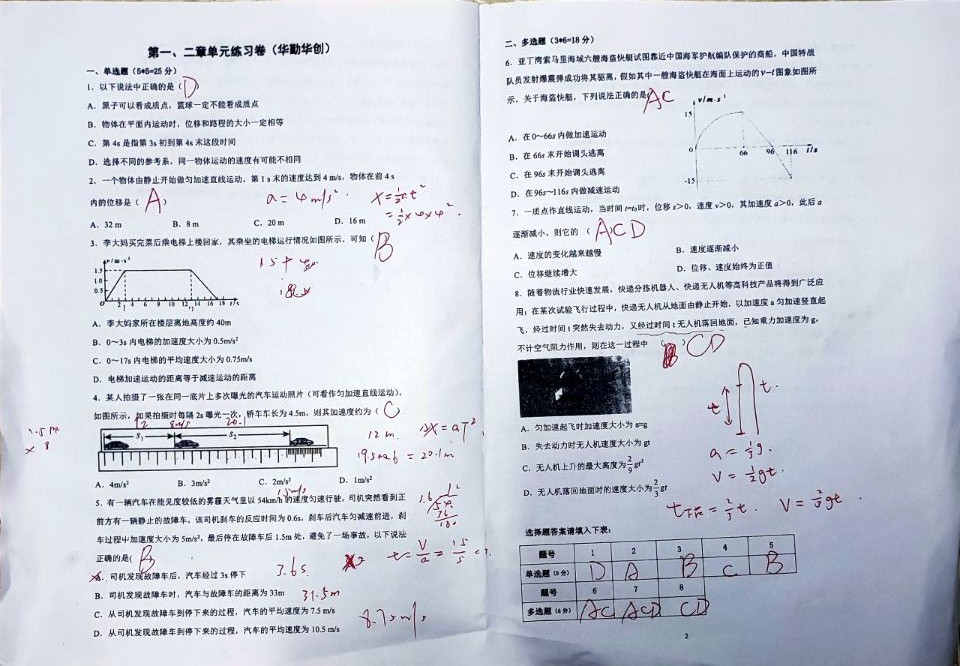 第一、二章单元练习卷（华勤华创）
一、单选题（5*5=25 分）
1．以下说法中正确的是（D）
A．原子可以看成质点，篮球一定不能看成质点
B．物体在平面内运动时，位移和路程的大小一定相等
C．第 4s 是指第 3s 初到第 4s 末这段时间
D．选择不同的参考系，同一物体运动的速度有可能不相同
2．一个物体由静止开始做匀加速直线运动，第 1 s 末的速度达到 4 m/s，物体在前 4 s
内的位移是（A）
a = 4 m/s²
x = ½at²
= ½×4×4²
A．32 m B．8 m C．20 m D．16 m
3．李大妈买完菜后乘电梯上楼回家，其乘坐的电梯运行情况如图所示，可知（B
v/m·s⁻¹
1.5
1.0
0.5
0 2 4 6 8 10 12 14 16 18 t/s
A．李大妈家所在楼层离地高度约 40m
B．0～3s 内电梯的加速度大小为 0.5m/s²
C．0～17s 内电梯的平均速度大小为 0.75m/s
D．电梯加速运动的距离等于减速运动的距离
4．某人拍摄了一张在同一底片上多次曝光的汽车运动照片（可看作匀加速直线运动），
如图所示，如果拍摄时每隔 2s 曝光一次，轿车车长为 4.5m，则其加速度约为（C
12
S₁ S₂
12 m
△x = aT²
= 20.1m
A．4m/s² B．3m/s² C．2m/s² D．1m/s²
5．有一辆汽车在能见度较低的雾霾天气里以 54km/h 的速度匀速行驶，司机突然看到正
15m/s
前方有一辆静止的故障车，该司机刹车的反应时间为 0.6s，刹车后汽车匀减速前进，刹
车过程中加速度大小为 5m/s²，最后停在故障车后 1.5m 处，避免了一场事故，以下说法
正确的是（B）
t = V/a = 15/5
A．司机发现故障车后，汽车经过 3s 停下
3.6s
B．司机发现故障车时，汽车与故障车的距离为 33m
31.5m
C．从司机发现故障车到停下来的过程，汽车的平均速度为 7.5 m/s
8.75m/s
D．从司机发现故障车到停下来的过程，汽车的平均速度为 10.5 m/s
二、多选题（3*6=18 分）
6．亚丁湾索马里海域六艘海盗快艇试图靠近中国海军护航编队保护的商船，中国特战
队员发射爆震弹成功将其驱离，假如其中一艘海盗快艇在海面上运动的 v－t 图象如图所
示，关于海盗快艇，下列说法正确的是AC
v/m·s⁻¹
15
0 66 96 116 t/s
-15
A．在 0～66s 内做加速运动
B．在 66s 末开始调头逃离
C．在 96s 末开始调头逃离
D．在 96s～116s 内做减速运动
7．一质点作直线运动，当时间 t=t₀时，位移 s＞0，速度 v＞0，其加速度 a＞0，此后 a
逐渐减小，则它的（ACD
A．速度的变化越来越慢 B．速度逐渐减小
C．位移继续增大 D．位移、速度始终为正值
8．随着物流行业快速发展，快递分拣机器人、快递无人机等高科技产品将得到广泛应
用；在某次试验飞行过程中，快递无人机从地面由静止开始，以加速度 a 匀加速竖直起
飞，经过时间 t 突然失去动力，又经过时间 t 无人机落回地面，已知重力加速度为 g，
不计空气阻力作用，则在这一过程中 CD
t t
A．匀加速起飞时加速度大小为 a=g
B．失去动力时无人机速度大小为 gt
C．无人机上升的最大高度为2/9gt²
D．无人机落回地面时的速度大小为2/3gt
a = ⅓g.
V = ½gt.
t下落 = ⅔t. V = ⅔gt
选择题答案请填入下表：
题号 1 2 3 4 5
单选题（5分） D A B C B
题号 6 7 8
多选题（6分） AC ACD CD
2